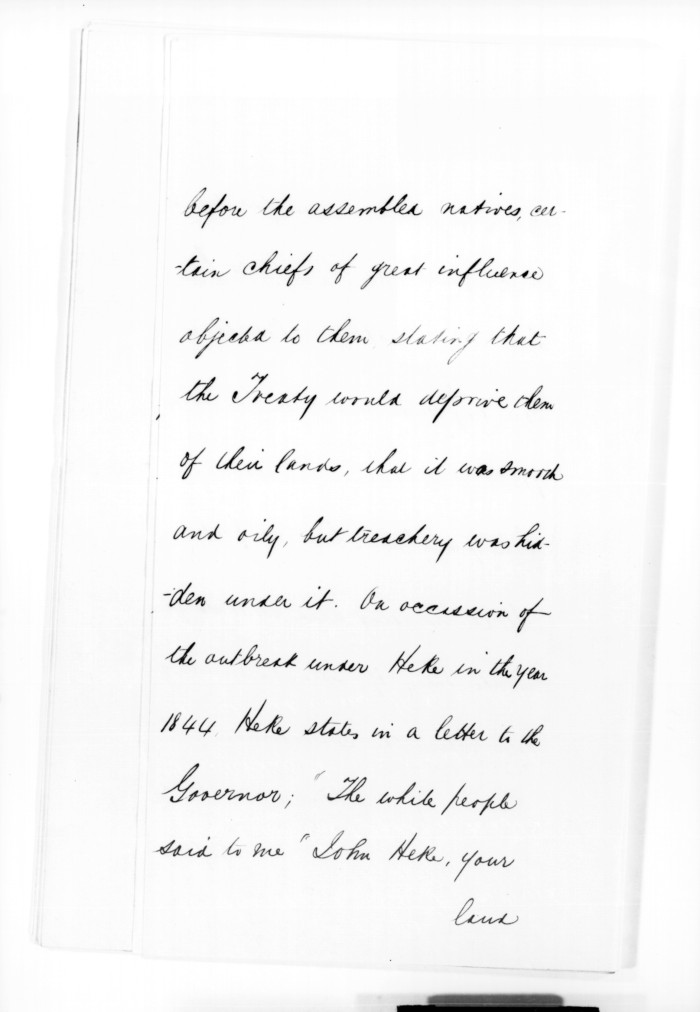 before the assembled natives, cer-
-tain chiefs of great influence
objected to them, stating that
the Treaty would deprive them
of their lands, that it was smooth
and oily, but treachery was hid-
-den under it. On occassion of
the outbreak under Heke in the year
1844, Heke states in a letter to the
Governor; "The white people
said to me "John Heke, your
land